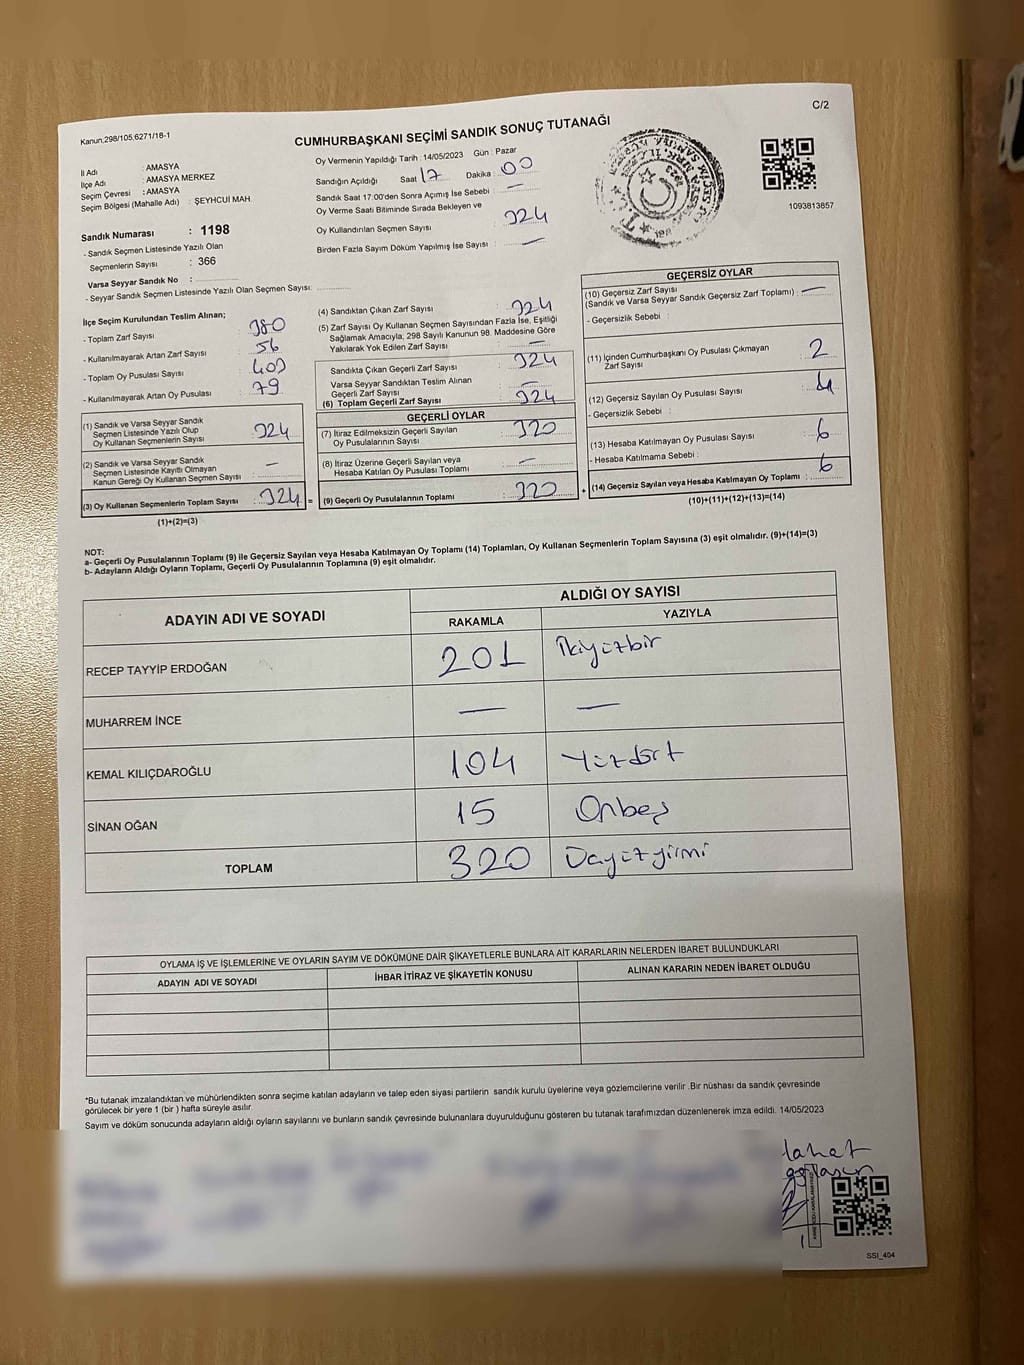 C/2
Kanun.298/105,6271/18-1
CUMHURBAŞKANI SEÇİMİ SANDIK SONUÇ TUTANAĞI
İl Adı : AMASYA
İlçe Adı : AMASYA MERKEZ
Seçim Çevresi : AMASYA
Seçim Bölgesi (Mahalle Adı) : ŞEYHCUI MAH.
Oy Vermenin Yapıldığı Tarih : 14/05/2023 Gün : Pazar
Sandığın Açıldığı Saat 17 Dakika : 00
Sandık Saat 17:00'den Sonra Açımış İse Sebebi : —
Oy Verme Saati Bitiminde Sırada Bekleyen ve
Oy Kullandırılan Seçmen Sayısı : 324
Birden Fazla Sayım Döküm Yapılmış İse Sayısı : —
1093813857
Sandık Numarası : 1198
- Sandık Seçmen Listesinde Yazılı Olan
Seçmenlerin Sayısı : 366
Varsa Seyyar Sandık No :
- Seyyar Sandık Seçmen Listesinde Yazılı Olan Seçmen Sayısı:
İlçe Seçim Kurulundan Teslim Alınan;
- Toplam Zarf Sayısı : 380
- Kullanılmayarak Artan Zarf Sayısı : 56
- Toplam Oy Pusulası Sayısı : 403
- Kullanılmayarak Artan Oy Pusulası : 79
(1) Sandık ve Varsa Seyyar Sandık
Seçmen Listesinde Yazılı Olup
Oy Kullanan Seçmenlerin Sayısı : 324
(2) Sandık ve Varsa Seyyar Sandık
Seçmen Listesinde Kayıtlı Olmayan
Kanun Gereği Oy Kullanan Seçmen Sayısı : —
(3) Oy Kullanan Seçmenlerin Toplam Sayısı : 324 =
(1)+(2)=(3)
(4) Sandıktan Çıkan Zarf Sayısı : 324
(5) Zarf Sayısı Oy Kullanan Seçmen Sayısından Fazla İse, Eşitliği
Sağlamak Amacıyla, 298 Sayılı Kanunun 98. Maddesine Göre
Yakılarak Yok Edilen Zarf Sayısı : —
Sandıkta Çıkan Geçerli Zarf Sayısı : 324
Varsa Seyyar Sandıktan Teslim Alınan
Geçerli Zarf Sayısı : —
(6) Toplam Geçerli Zarf Sayısı : 324
GEÇERLİ OYLAR
(7) İtiraz Edilmeksizin Geçerli Sayılan
Oy Pusulalarının Sayısı : 320
(8) İtiraz Üzerine Geçerli Sayılan veya
Hesaba Katılan Oy Pusulası Toplamı : —
(9) Geçerli Oy Pusulalarının Toplamı : 320 +
GEÇERSİZ OYLAR
(10) Geçersiz Zarf Sayısı
(Sandık ve Varsa Seyyar Sandık Geçersiz Zarf Toplamı) : —
- Geçersizlik Sebebi :
(11) İçinden Cumhurbaşkanı Oy Pusulası Çıkmayan
Zarf Sayısı : 2
(12) Geçersiz Sayılan Oy Pusulası Sayısı : 4
- Geçersizlik Sebebi :
(13) Hesaba Katılmayan Oy Pusulası Sayısı : 6
- Hesaba Katılmama Sebebi :
(14) Geçersiz Sayılan veya Hesaba Katılmayan Oy Toplamı : 6
(10)+(11)+(12)+(13)=(14)
NOT:
a- Geçerli Oy Pusulalarının Toplamı (9) ile Geçersiz Sayılan veya Hesaba Katılmayan Oy Toplamı (14) Toplamları, Oy Kullanan Seçmenlerin Toplam Sayısına (3) eşit olmalıdır. (9)+(14)=(3)
b- Adayların Aldığı Oyların Toplamı, Geçerli Oy Pusulalarının Toplamına (9) eşit olmalıdır.
ADAYIN ADI VE SOYADI ALDIĞI OY SAYISI
RAKAMLA YAZIYLA
RECEP TAYYİP ERDOĞAN 201 İkiyüzbir
MUHARREM İNCE — —
KEMAL KILIÇDAROĞLU 104 Yüzdört
SİNAN OĞAN 15 Onbeş
TOPLAM 320 Üçyüzyirmi
OYLAMA İŞ VE İŞLEMLERİNE VE OYLARIN SAYIM VE DÖKÜMÜNE DAİR ŞİKAYETLERLE BUNLARA AİT KARARLARIN NELERDEN İBARET BULUNDUKLARI
ADAYIN ADI VE SOYADI İHBAR İTİRAZ VE ŞİKAYETİN KONUSU ALINAN KARARIN NEDEN İBARET OLDUĞU
*Bu tutanak imzalandıktan ve mühürlendikten sonra seçime katılan adayların ve talep eden siyasi partilerin sandık kurulu üyelerine veya gözlemcilerine verilir .Bir nüshası da sandık çevresinde
görülecek bir yere 1 (bir ) hafta süreyle asılır.
Sayım ve döküm sonucunda adayların aldığı oyların sayılarını ve bunların sandık çevresinde bulunanlara duyurulduğunu gösteren bu tutanak tarafımızdan düzenlenerek imza edildi. 14/05/2023
SSI_404